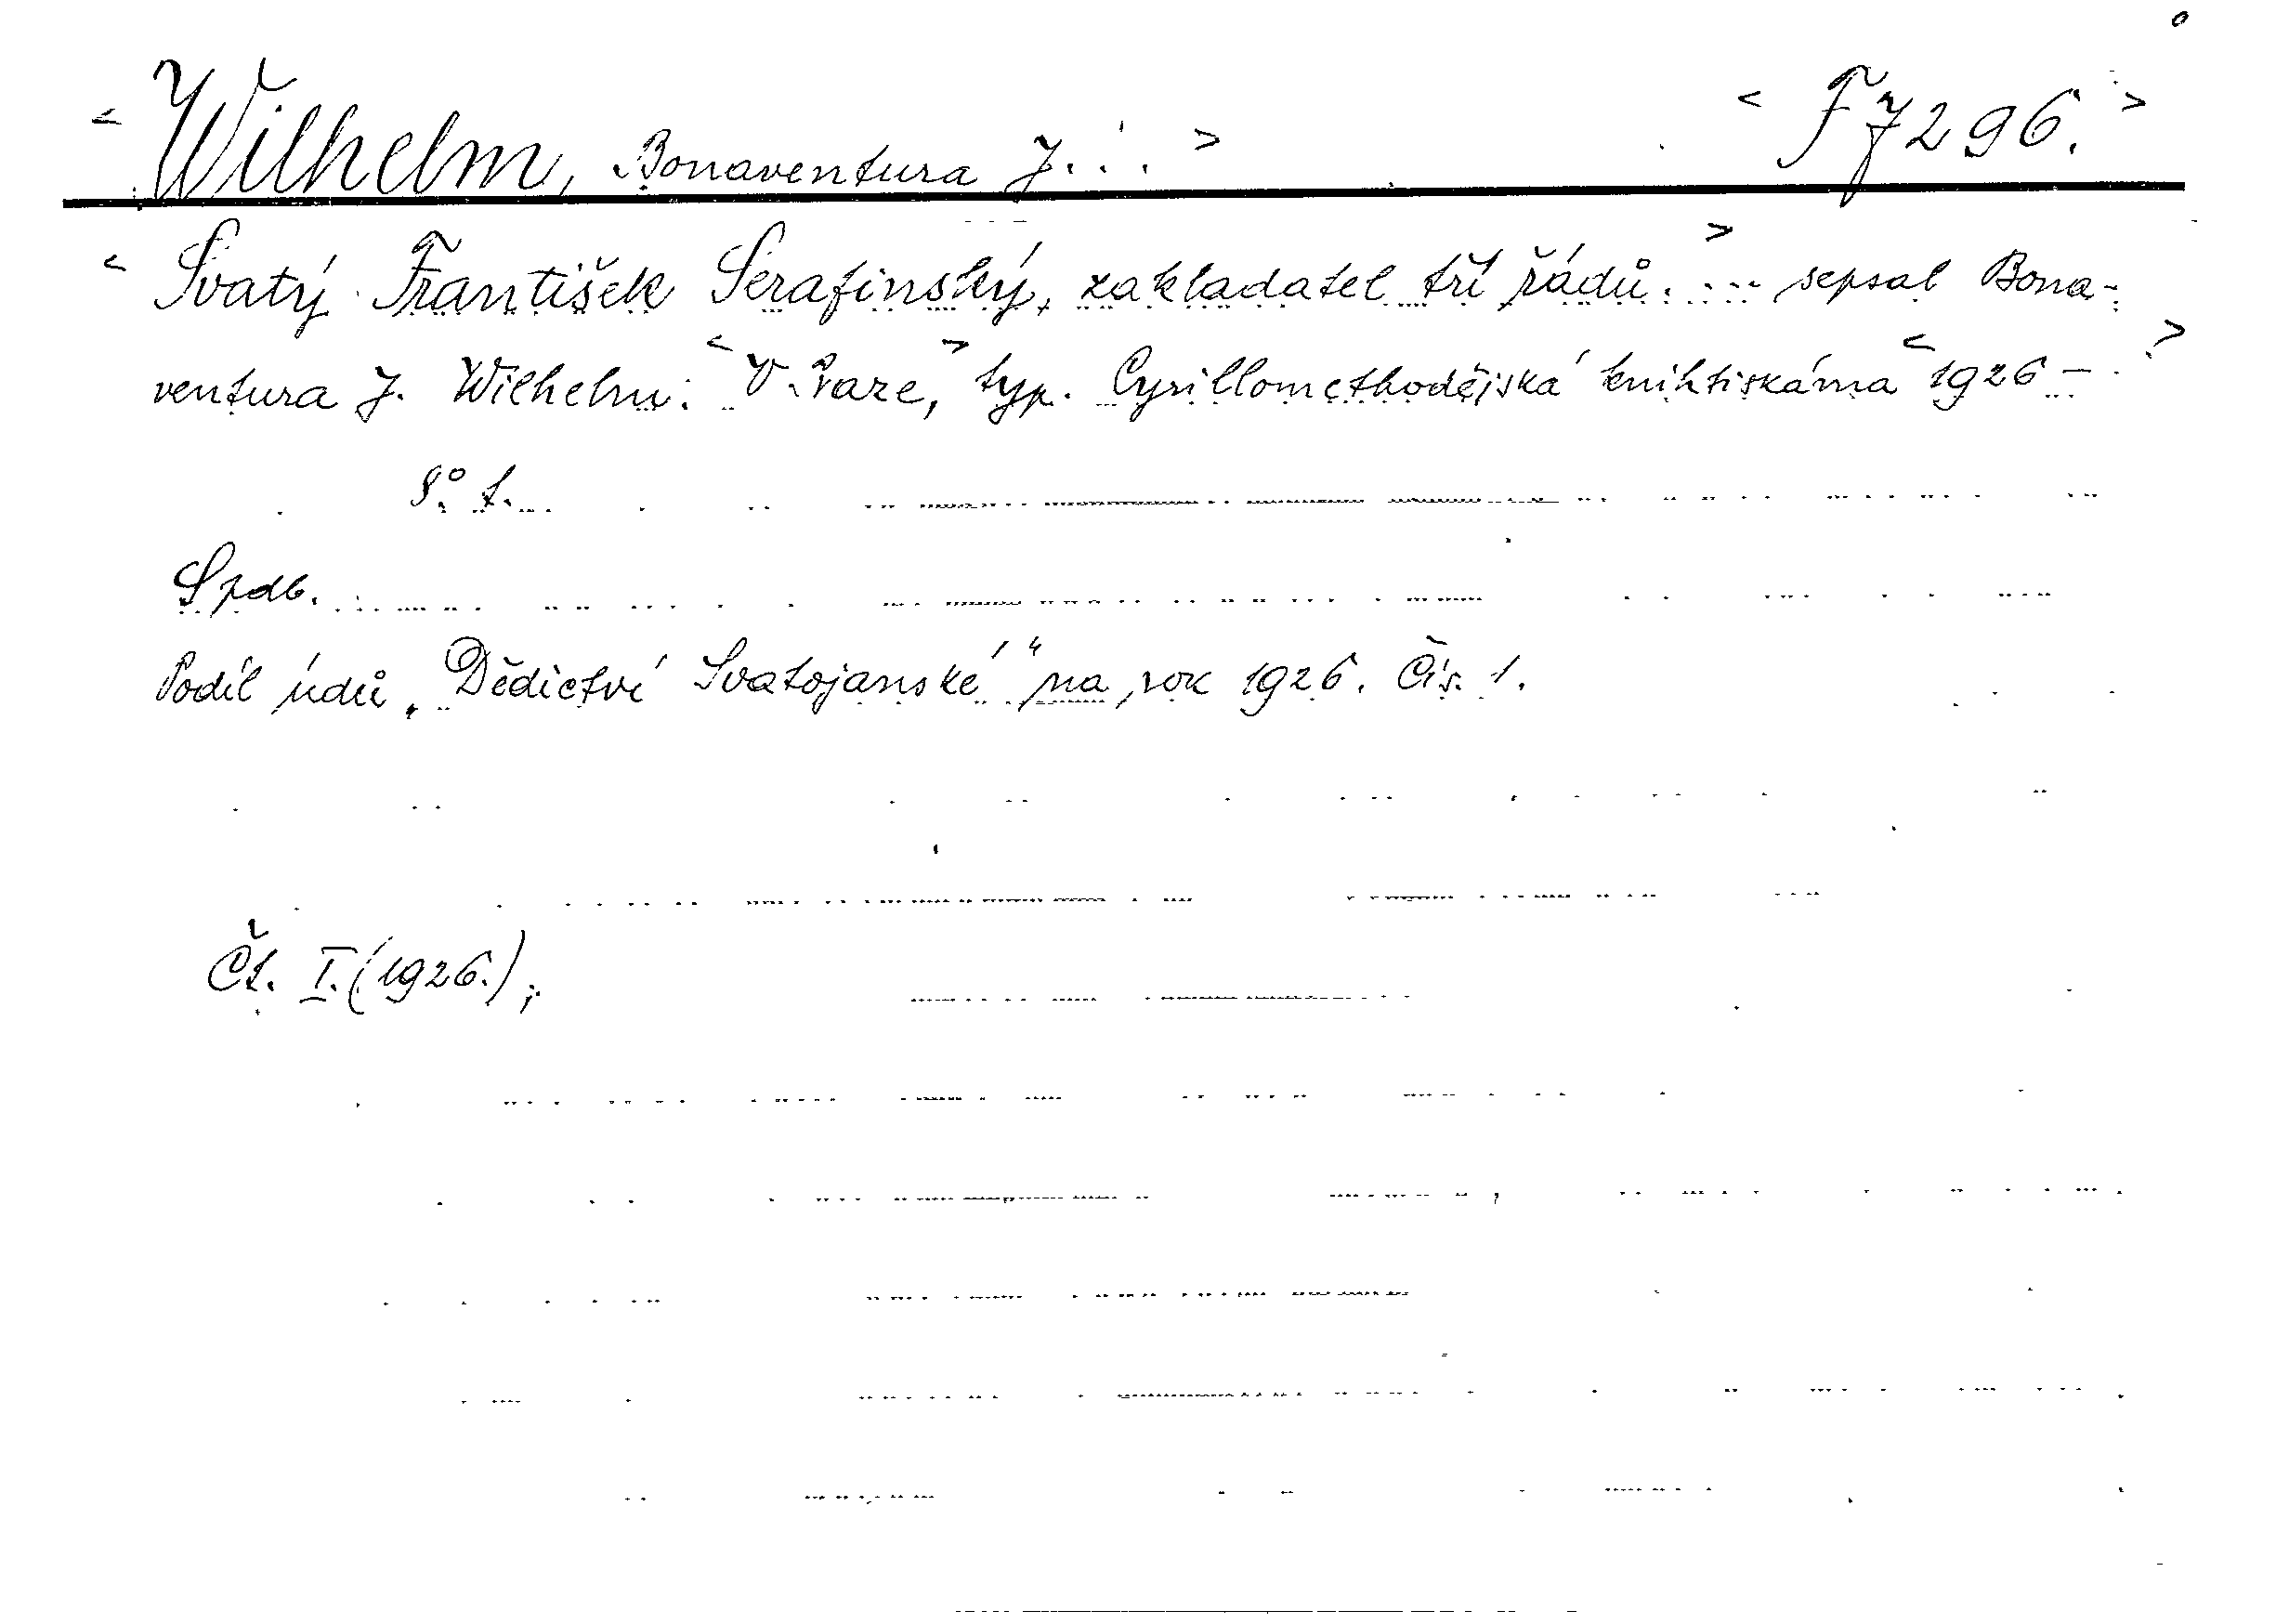 < Wilhelm, Bonaventura J. . . > < F 7296. >
< Svatý František Serafinský, zakladatel tří řádů. > ... sepsal Bona-
ventura J. Wilhelm. < V Praze, > typ. Cyrillomethodějská knihtiskárna < 1926 - >
8° t.
Spdb.
Podíl údů „Dědictví Svatojanské“ na rok 1926. Čís. 1.
Čt. I. (1926.);